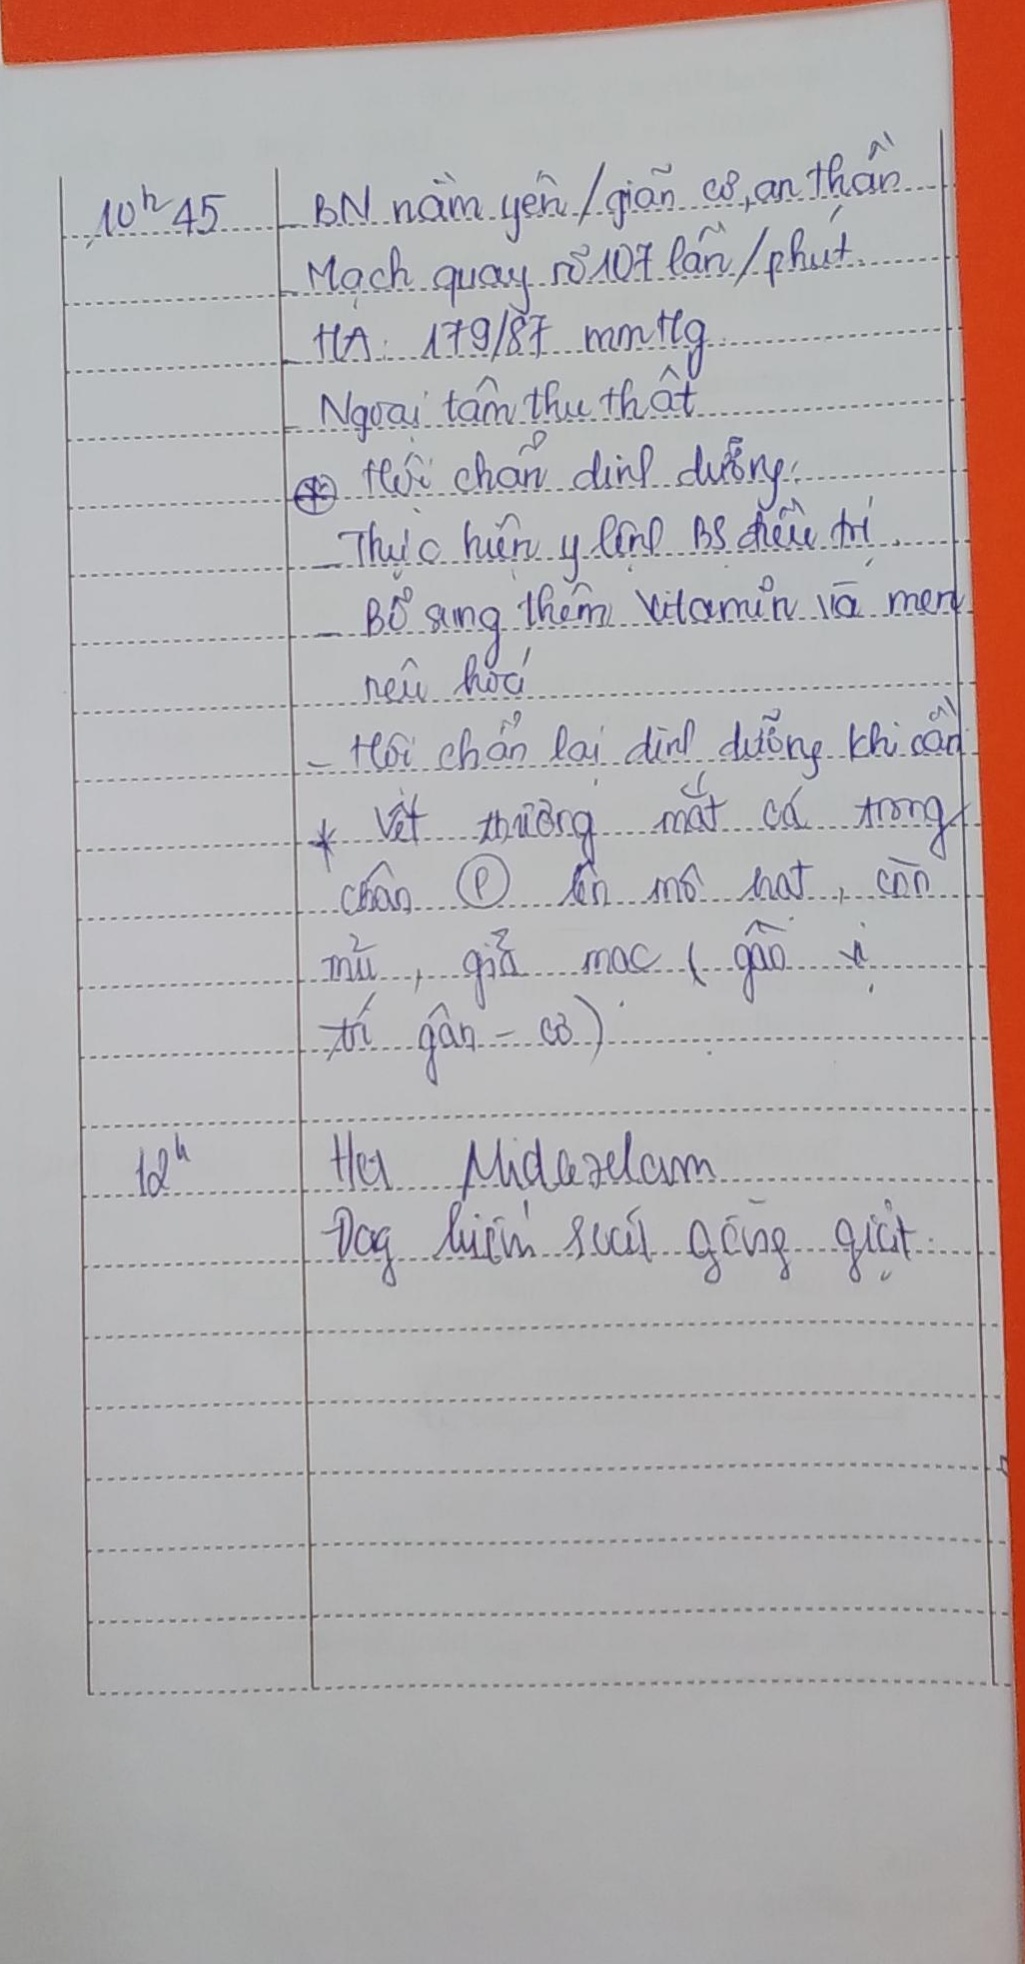 10h45 BN nằm yên/giãn cơ, an thần
Mạch quay rõ 107 lần/phút.
HA: 179/87 mmHg
Ngoại tâm thu thất
⊕ Hội chẩn dinh dưỡng:
- Thực hiện y lệnh BS điều trị.
- Bổ sung thêm vitamin và men
tiêu hoá
- Hội chẩn lại dinh dưỡng khi cần
* Vết thương mắt cá trong
chân (P) lên mô hạt, còn
mủ, giả mạc (gần vị
trí gân - cơ)
12h Hết Midazolam
Đag hiếm suất gồng giật.